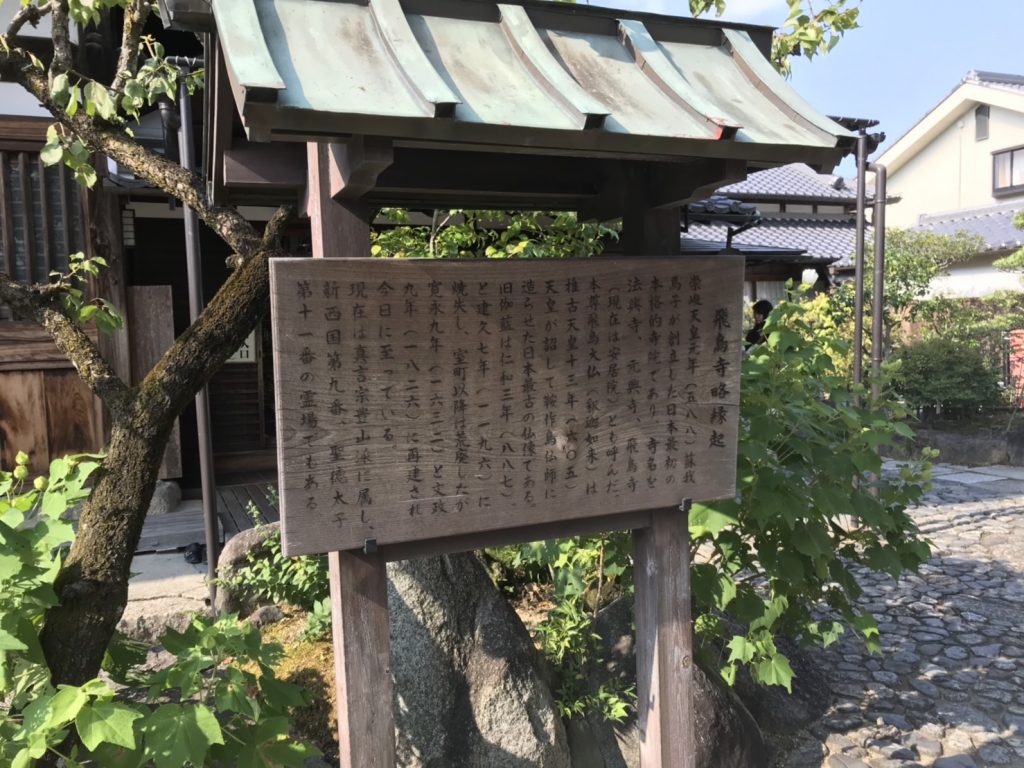 飛鳥寺略縁起
崇峻天皇元年（五八八）蘇我
馬子が創立した日本最初の
本格的寺院であり、寺名を
法興寺、元興寺、飛鳥寺
（現在は安居院）とも呼んだ。
本尊飛鳥大仏（釈迦如来）は
推古天皇十三年（六〇五）
天皇が詔して鞍作鳥仏師に
造らせた日本最古の仏像である。
旧伽藍は仁和三年（八八七）
と建久七年（一一九六）に
焼失し、室町以降は荒廃したが
寛永九年（一六三二）と文政
九年（一八二六）に再建され
今日に至っている。
現在は真言宗豊山派に属し、
新西国第九番、聖徳太子
第十一番の霊場でもある